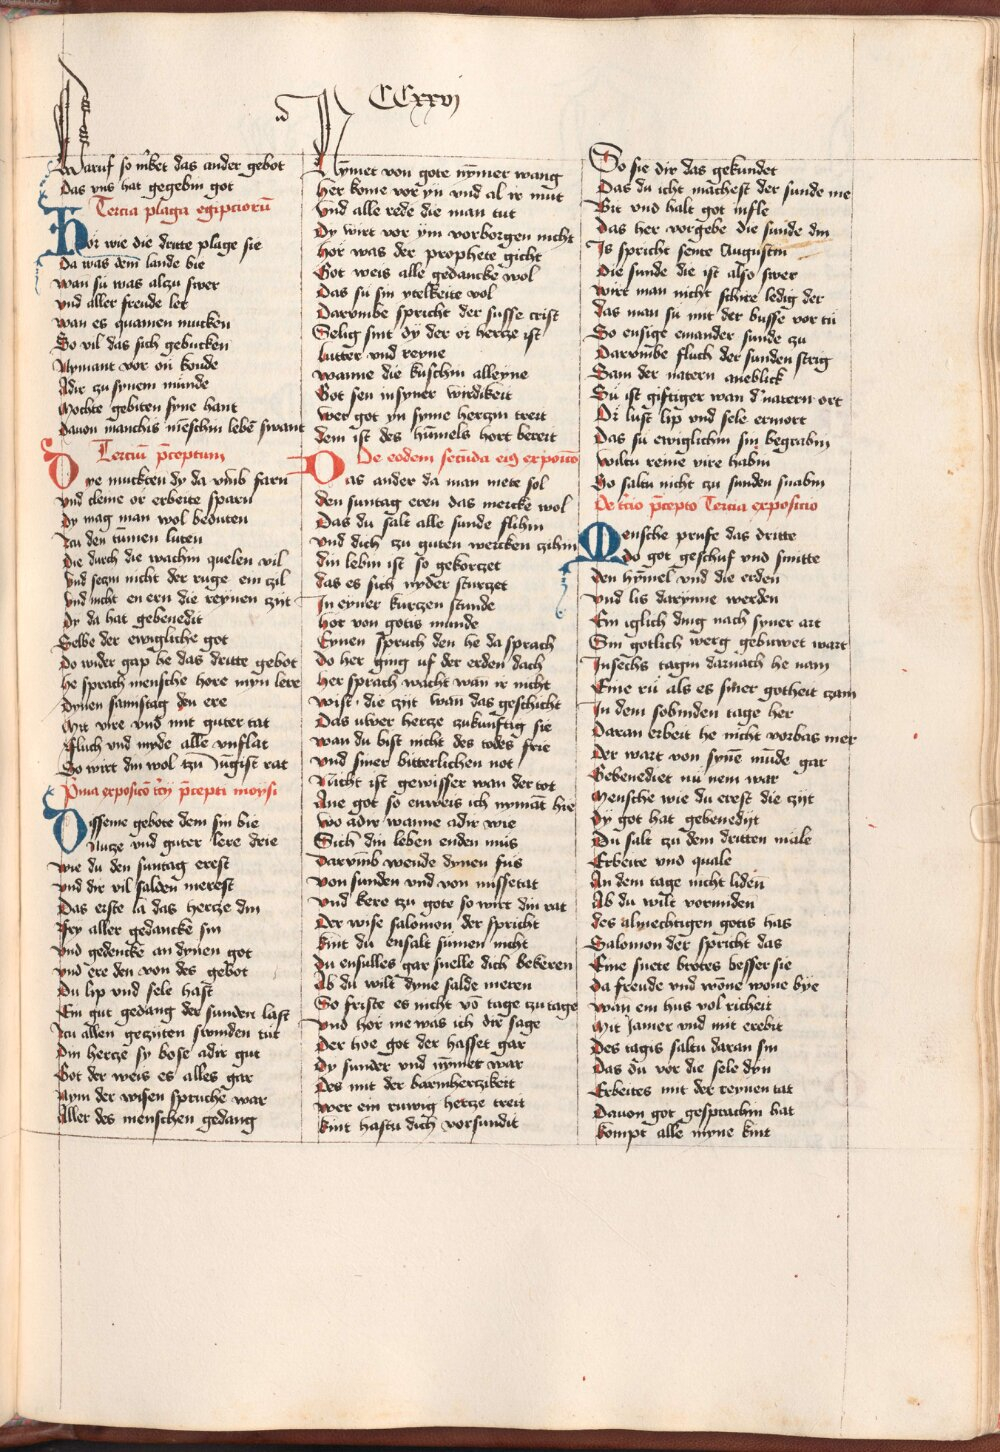 CCxxvj
Daruf so mͤket das ander gebot
Das vns hat gegebin got
Tercia plaga egipciorū
Hor wie die dritte plage sie
Da was dem lande bie
wan su was alzu swer
vnd aller freude ler
wan es quamen mucken
So vil das sich gebucken
Nymant vor on konde
Adir zu synem munde
Mochte gebiten syne hant
Dauon manchis mēschin lebē swant
Terciū p̄ceptum
Dye muckten dy da vmb farn
vnd cleine or erbeite sparn
Dy mag man wol beduten
zcu den tūmen luten
Die durch die wachin quelen vil
vnd seczin nicht der ruge ein zil
vnd nicht en ern die reynen zyt
Dy da hat gebenedit
Selbe der ewigliche got
Do wider gap he das dritte gebot
he sprach mensche hore myn lere
Dynen samstag den ere
Mit vire vnd mit guter tat
Fluch vnd myde alle vnflat
So wirt din wol tzū Jūgist rat
Pma exposico tcij p̄cepti moysi
Disseme gebote dem sin bie
Nucze vnd guter lere drie
wie du den suntag erest
vnd dir vil salden merest
Das erste la das hercze din
Fry aller gedancke sin
vnd gedencke an dynen got
vnd ere den von des gebot
Du lip vnd sele hast
Ein gut gedang der sunden last
zcu allen geczyten swinden tut
Din hercze sy bose adir gut
Got der weis es alles gar
Nym der wisen spruche war
Aller des menschen gedang
Nymet von gote nymer wang
Her kome vor yn vnd al ir mut
Vnd alle rede die man tut
Dy wirt vor ym vorborgen nicht
Hor was der prophete gicht
Got weis alle gedancke wol
Das su sin ytelkeite vol
Darvmbe spricht der susse crist
Selig sint dy der or hercze ist
lutter vnd reyne
wanne die kuschin alleyne
Got sen in syner wirdikeit
wer got yn syme herczin treit
dem ist des hūmels hort bereit
De eodem secunda eiꝯ exposico
Das ander da man mete sol
den suntag eren das mercke wol
Das du salt alle sunde flihin
vnd dich zu guten wercken zihin
din lebin ist so gekorczet
das es sich nyder sturczet
In eyner kurczen stunde
Hor von gotis munde
Eynen spruch den he da sprach
Do her ging uf der erden dach
Her sprach wacht wan ir nicht
wist die zyt wan das geschicht
Das uwer hercze zukunftig sie
wan du bist nicht des todes frie
vnd siner bitterlichen not
Nicht ist gewisser wan der tot
Ane got so enweis ich nymāt hie
wo adir wanne adir wie
Sich din leben enden mus
Darvmb wende dynen fus
von sunden vnd von missetat
vnd kere zu gote so wirt din rat
Der wise salomon der spricht
kint du ensalt sūmen nicht
Du ensulles gar snelle dich bekeren
Ab du wilt dyne salde meren
So friste es nicht vō tage tzu tage
vnd hor me was ich dir sage
Der hoe got der hasset gar
Dy sunder vnd nȳmet war
Des mit der barmherczikeit
wer ein ruwig hercze treit
kint hastu dich vorsundit
So sie dir das gekundet
Das du icht machest der sunde me
Bit vnd halt got infle
Das her vorgebe die sunde din
Is spricht sente Augustin
Die sunde die ist also swer
wirt man nicht schire ledig der
das man su mit der busse vor tu
So ensige einander sunde zu
Darvmbe fluch der sunden strig
Sam der natern aneblick
Su ist giftiger wan d' natern ort
Di lust lip vnd sele ermort
Das su ewiglichin sin begrabin
wiltu reine vire habin
So saltu nicht zu sunden snabin
De t̄cio p̄cepto Tercia exposicio
Mensche prufe das dritte
do got geschuf vnd smitte
Den hymel vnd die erden
vnd lis darynne werden
Ein iglich ding nach syner art
Sin gotlich werg gebuwet wart
In sechs tagin darnach he nam
Eine ru als es siner gotheit czam
In dem sobinden tage her
Daran erbeit he nicht vorbas mer
Der wart von synē mūde gar
Gebenediet nu nem war
Mensche wie du erest die czyt
Dy got hat gebenedyt
Du salt zu dem dritten male
Erbeite vnd quale
An dem tage nicht liden
Ab du wilt vormiden
des almechtigen gotis has
Salomon der spricht das
Eine snete brotes besser sie
Da freude vnd wōne wone bye
wan ein hus vol richeit
Mit Jamer vnd mit erebit
Des tagis saltu daran sin
Das du vor die sele dyn
Erbeites mit der reynen tat
Dauon got gesprachin hat
kompt alle myne kint